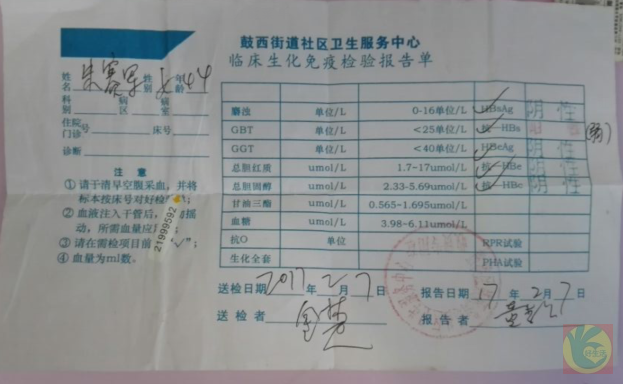 鼓西街道社区卫生服务中心
临床生化免疫检验报告单
姓名 性别 女 年龄 44
科别 病区 病室
住院门诊 号 床号
诊断
注 意
① 请于清早空腹采血,并将
标本按床号对好检
② 血液注入干管后,
动,所需血量应
③ 请在需检项目前 “√”;
④ 血量为ml数。
21999592
麝浊 单位/L 0-16单位/L HBsAg 阴性
GBT 单位/L <25单位/L 抗—HBs
GGT 单位/L <40单位/L HBeAg 阴性
总胆红质 umol/L 1.7-17umol/L 抗—HBe 阴性
总胆固醇 umol/L 2.33-5.69umol/L 抗—HBc 阴性
甘油三酯 umol/L 0.565-1.695umol/L
血糖 umol/L 3.98-6.11umol/L
抗O 单位 RPR试验
生化全套 PHA试验
送检日期 2017 年 2 月 7 日 报告日期 17 年 2 月 7 日
送检者 报告者